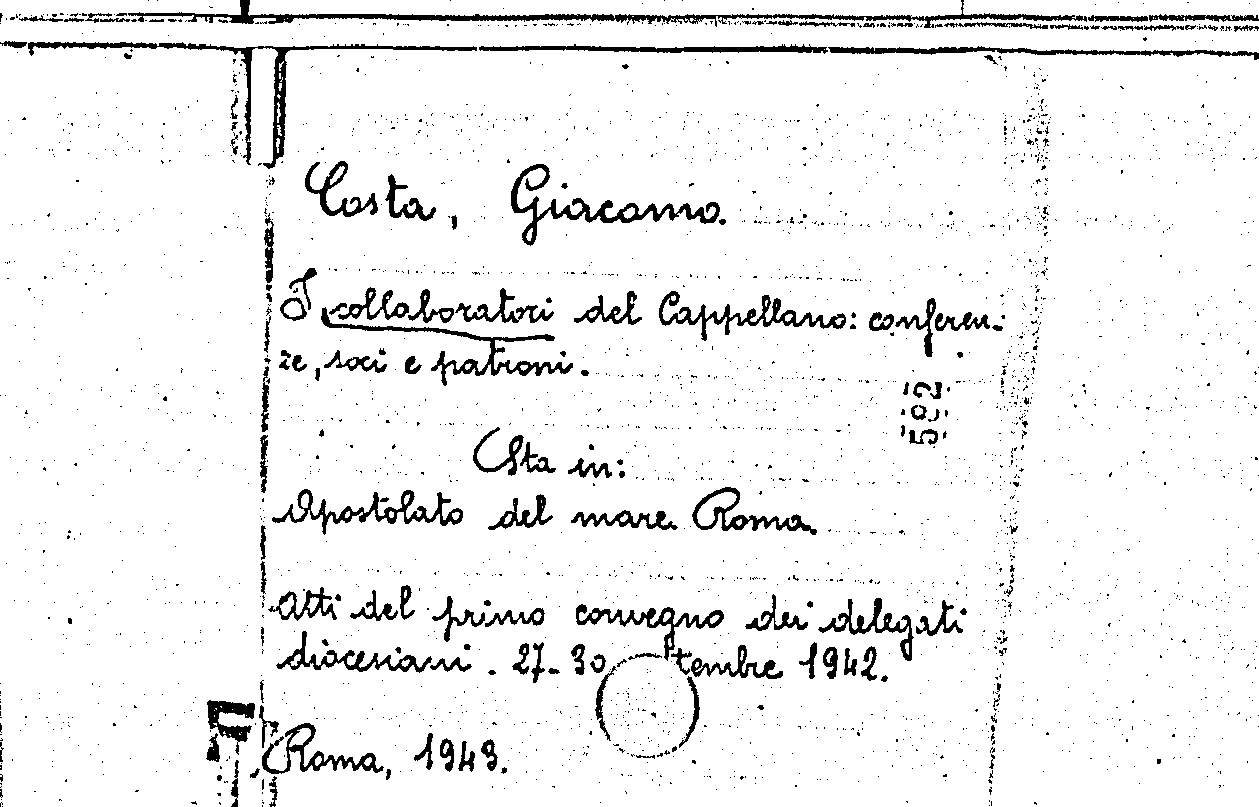 Costa, Giacomo.
I collaboratori del Cappellano: conferen-
ze, soci e patroni.
502
Sta in:
Apostolato del mare. Roma.
Atti del primo convegno dei delegati
diocesiani. 27-30 ttembre 1942.
Roma, 1943.